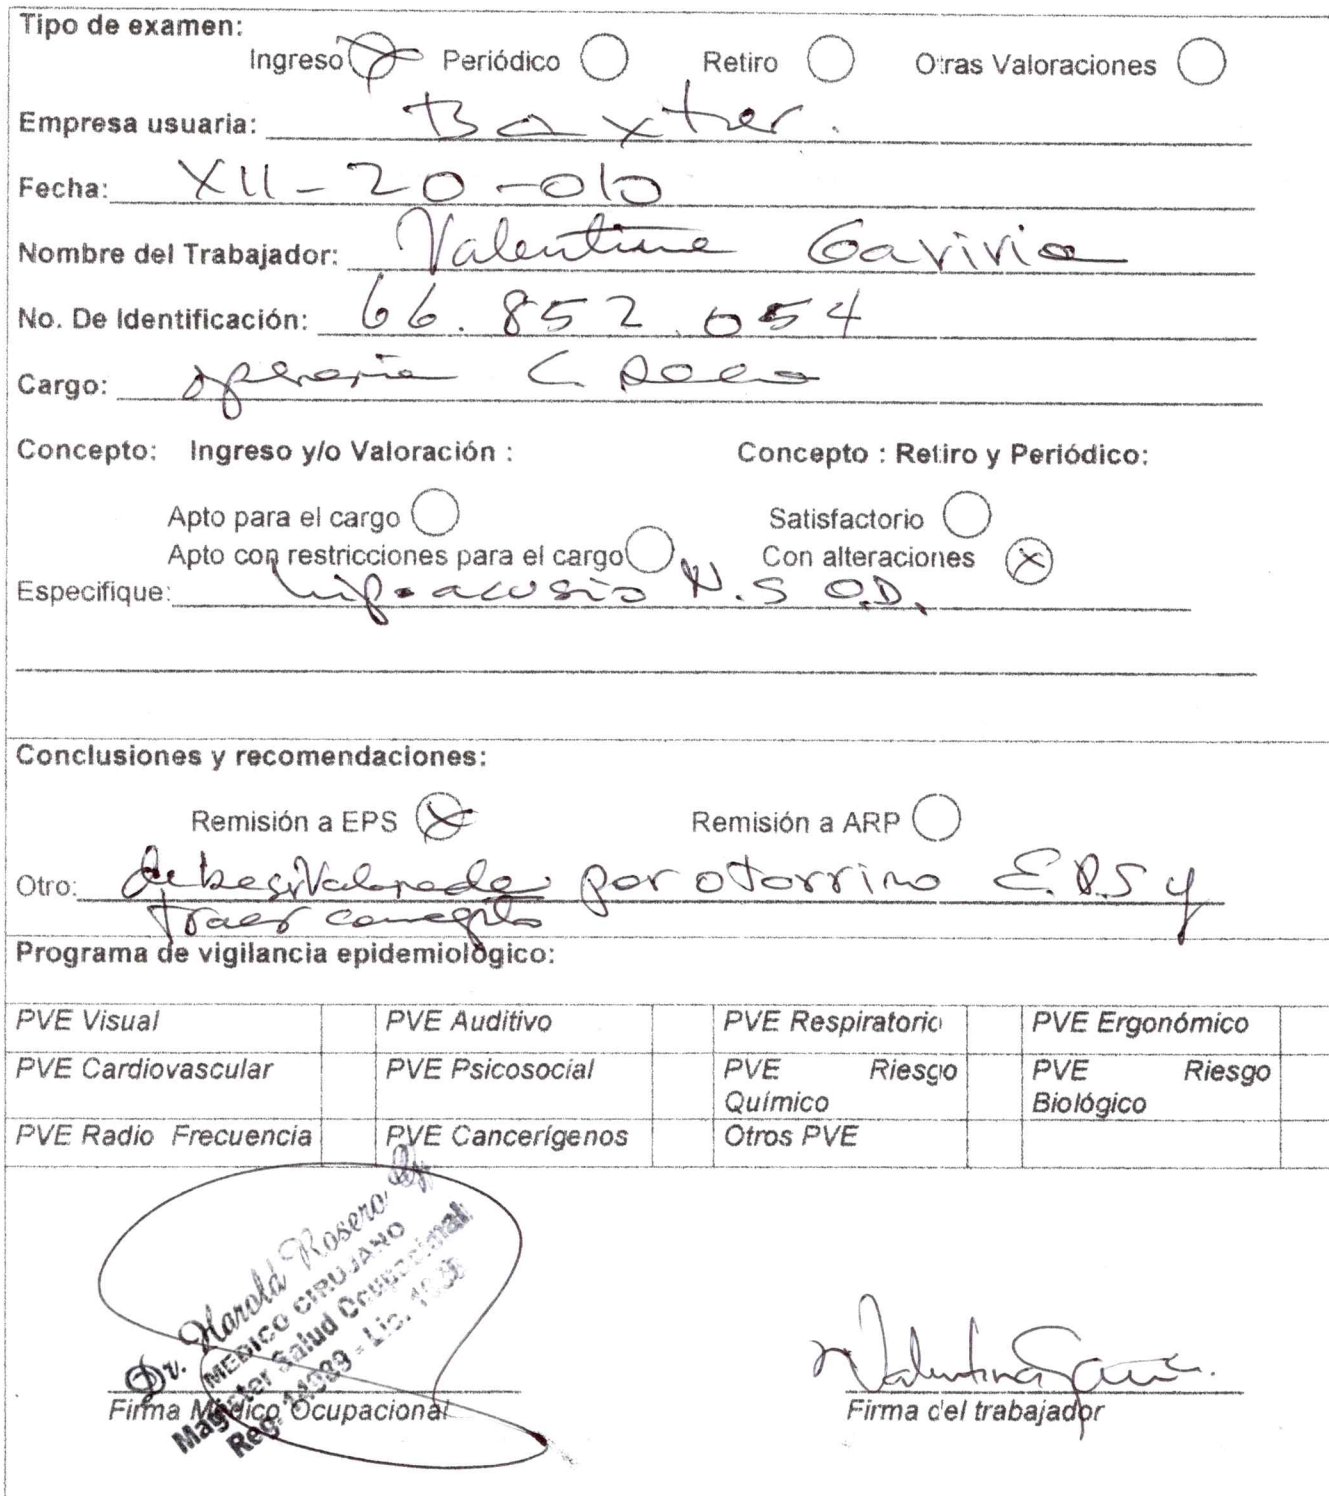 Tipo de examen:
Ingreso Periódico Retiro Otras Valoraciones
Empresa usuaria: Baxter.
Fecha: XII - 20 - 010
Nombre del Trabajador: Valentina Gaviria
No. De Identificación: 66.852.054
Cargo: operaria C.
Concepto: Ingreso y/o Valoración : Concepto : Retiro y Periódico:
Apto para el cargo Satisfactorio
Apto con restricciones para el cargo Con alteraciones
Especifique: hipoacusia N.S O.D.
Conclusiones y recomendaciones:
Remisión a EPS Remisión a ARP
Otro: debe ser Valorada por otorrino E.P.S y
traer concepto
Programa de vigilancia epidemiológico:
PVE Visual PVE Auditivo PVE Respiratorio PVE Ergonómico
PVE Cardiovascular PVE Psicosocial PVE Riesgo PVE Riesgo
Químico Biológico
PVE Radio Frecuencia PVE Cancerígenos Otros PVE
Dr. Harold Rosero
MEDICO CIRUJANO
Magister Salud Ocupacional
Reg. - Lic.
Valentina
Firma Médico Ocupacional Firma del trabajador